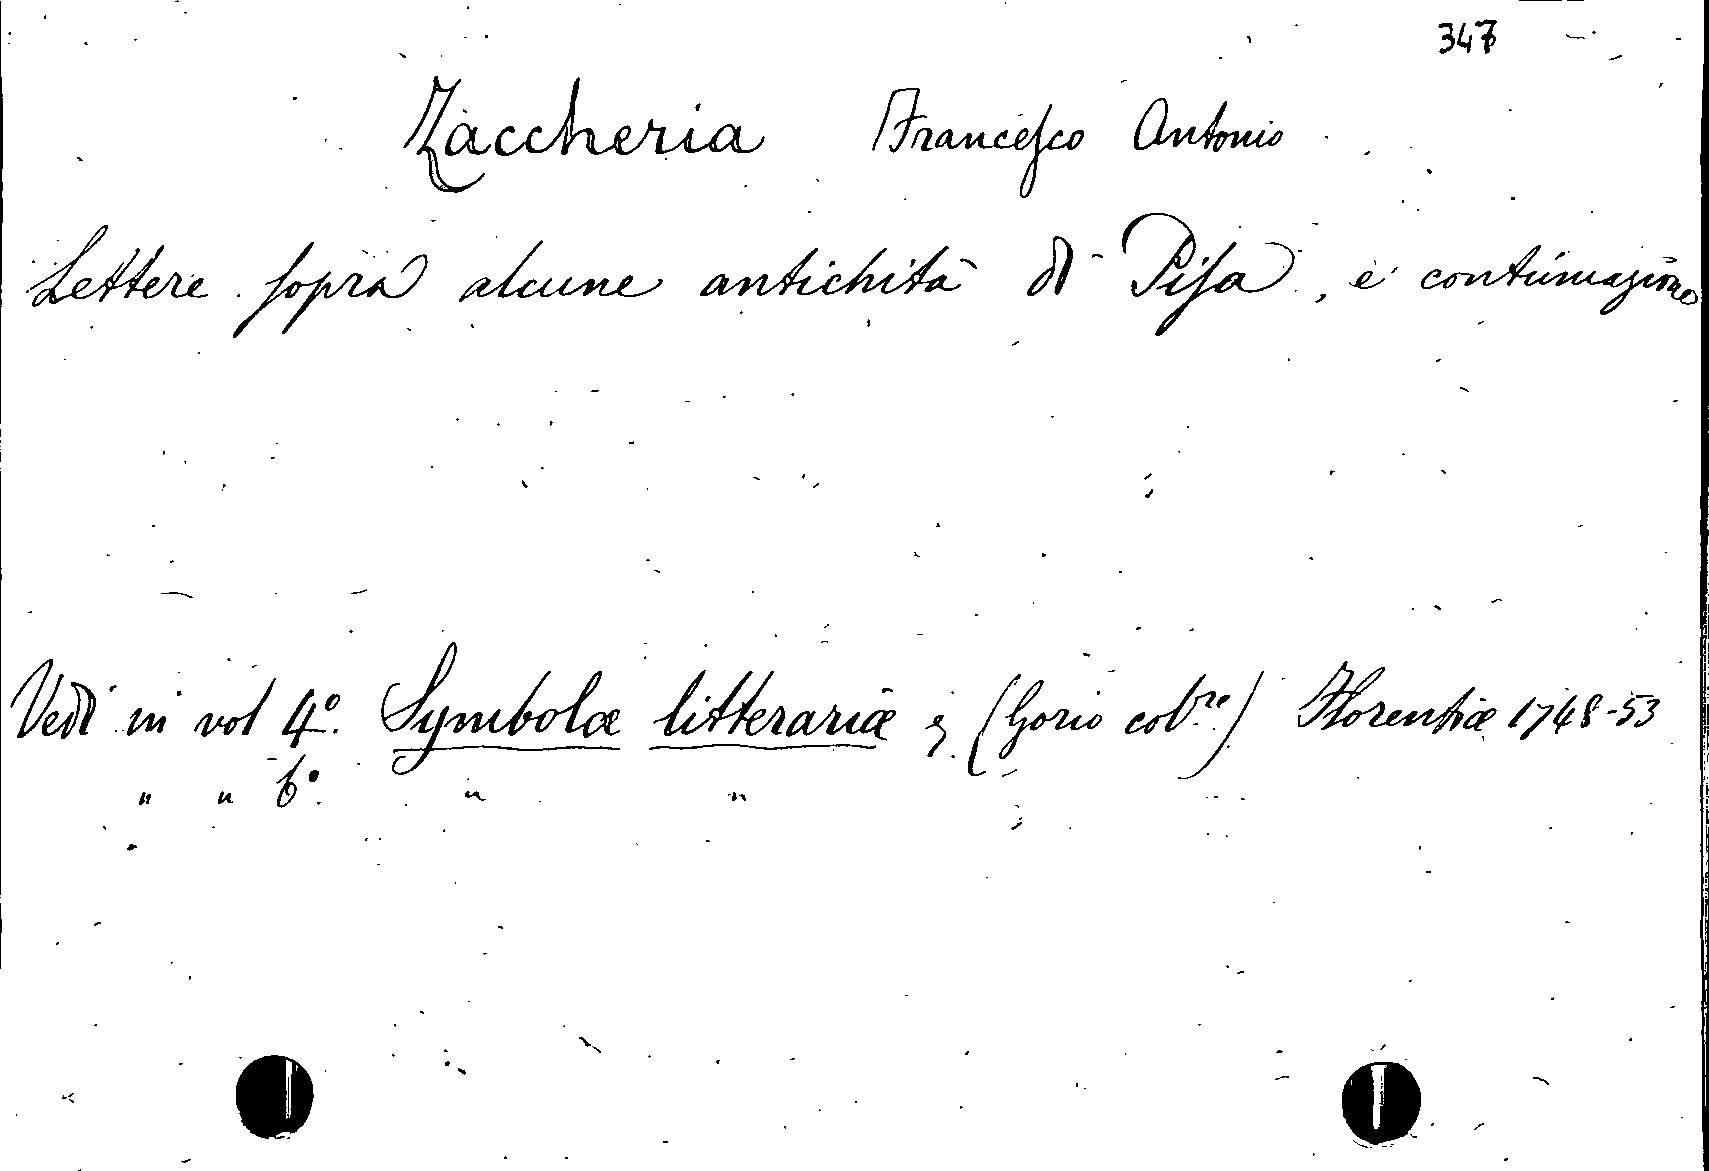 347
Zaccheria Francesco Antonio
Lettere sopra alcune antichità di Pisa, e continuazione
Vedi in vol 4º. Symbolæ litterariæ (Gorio colre) Florentiæ 1748-53
" " 6º. " "